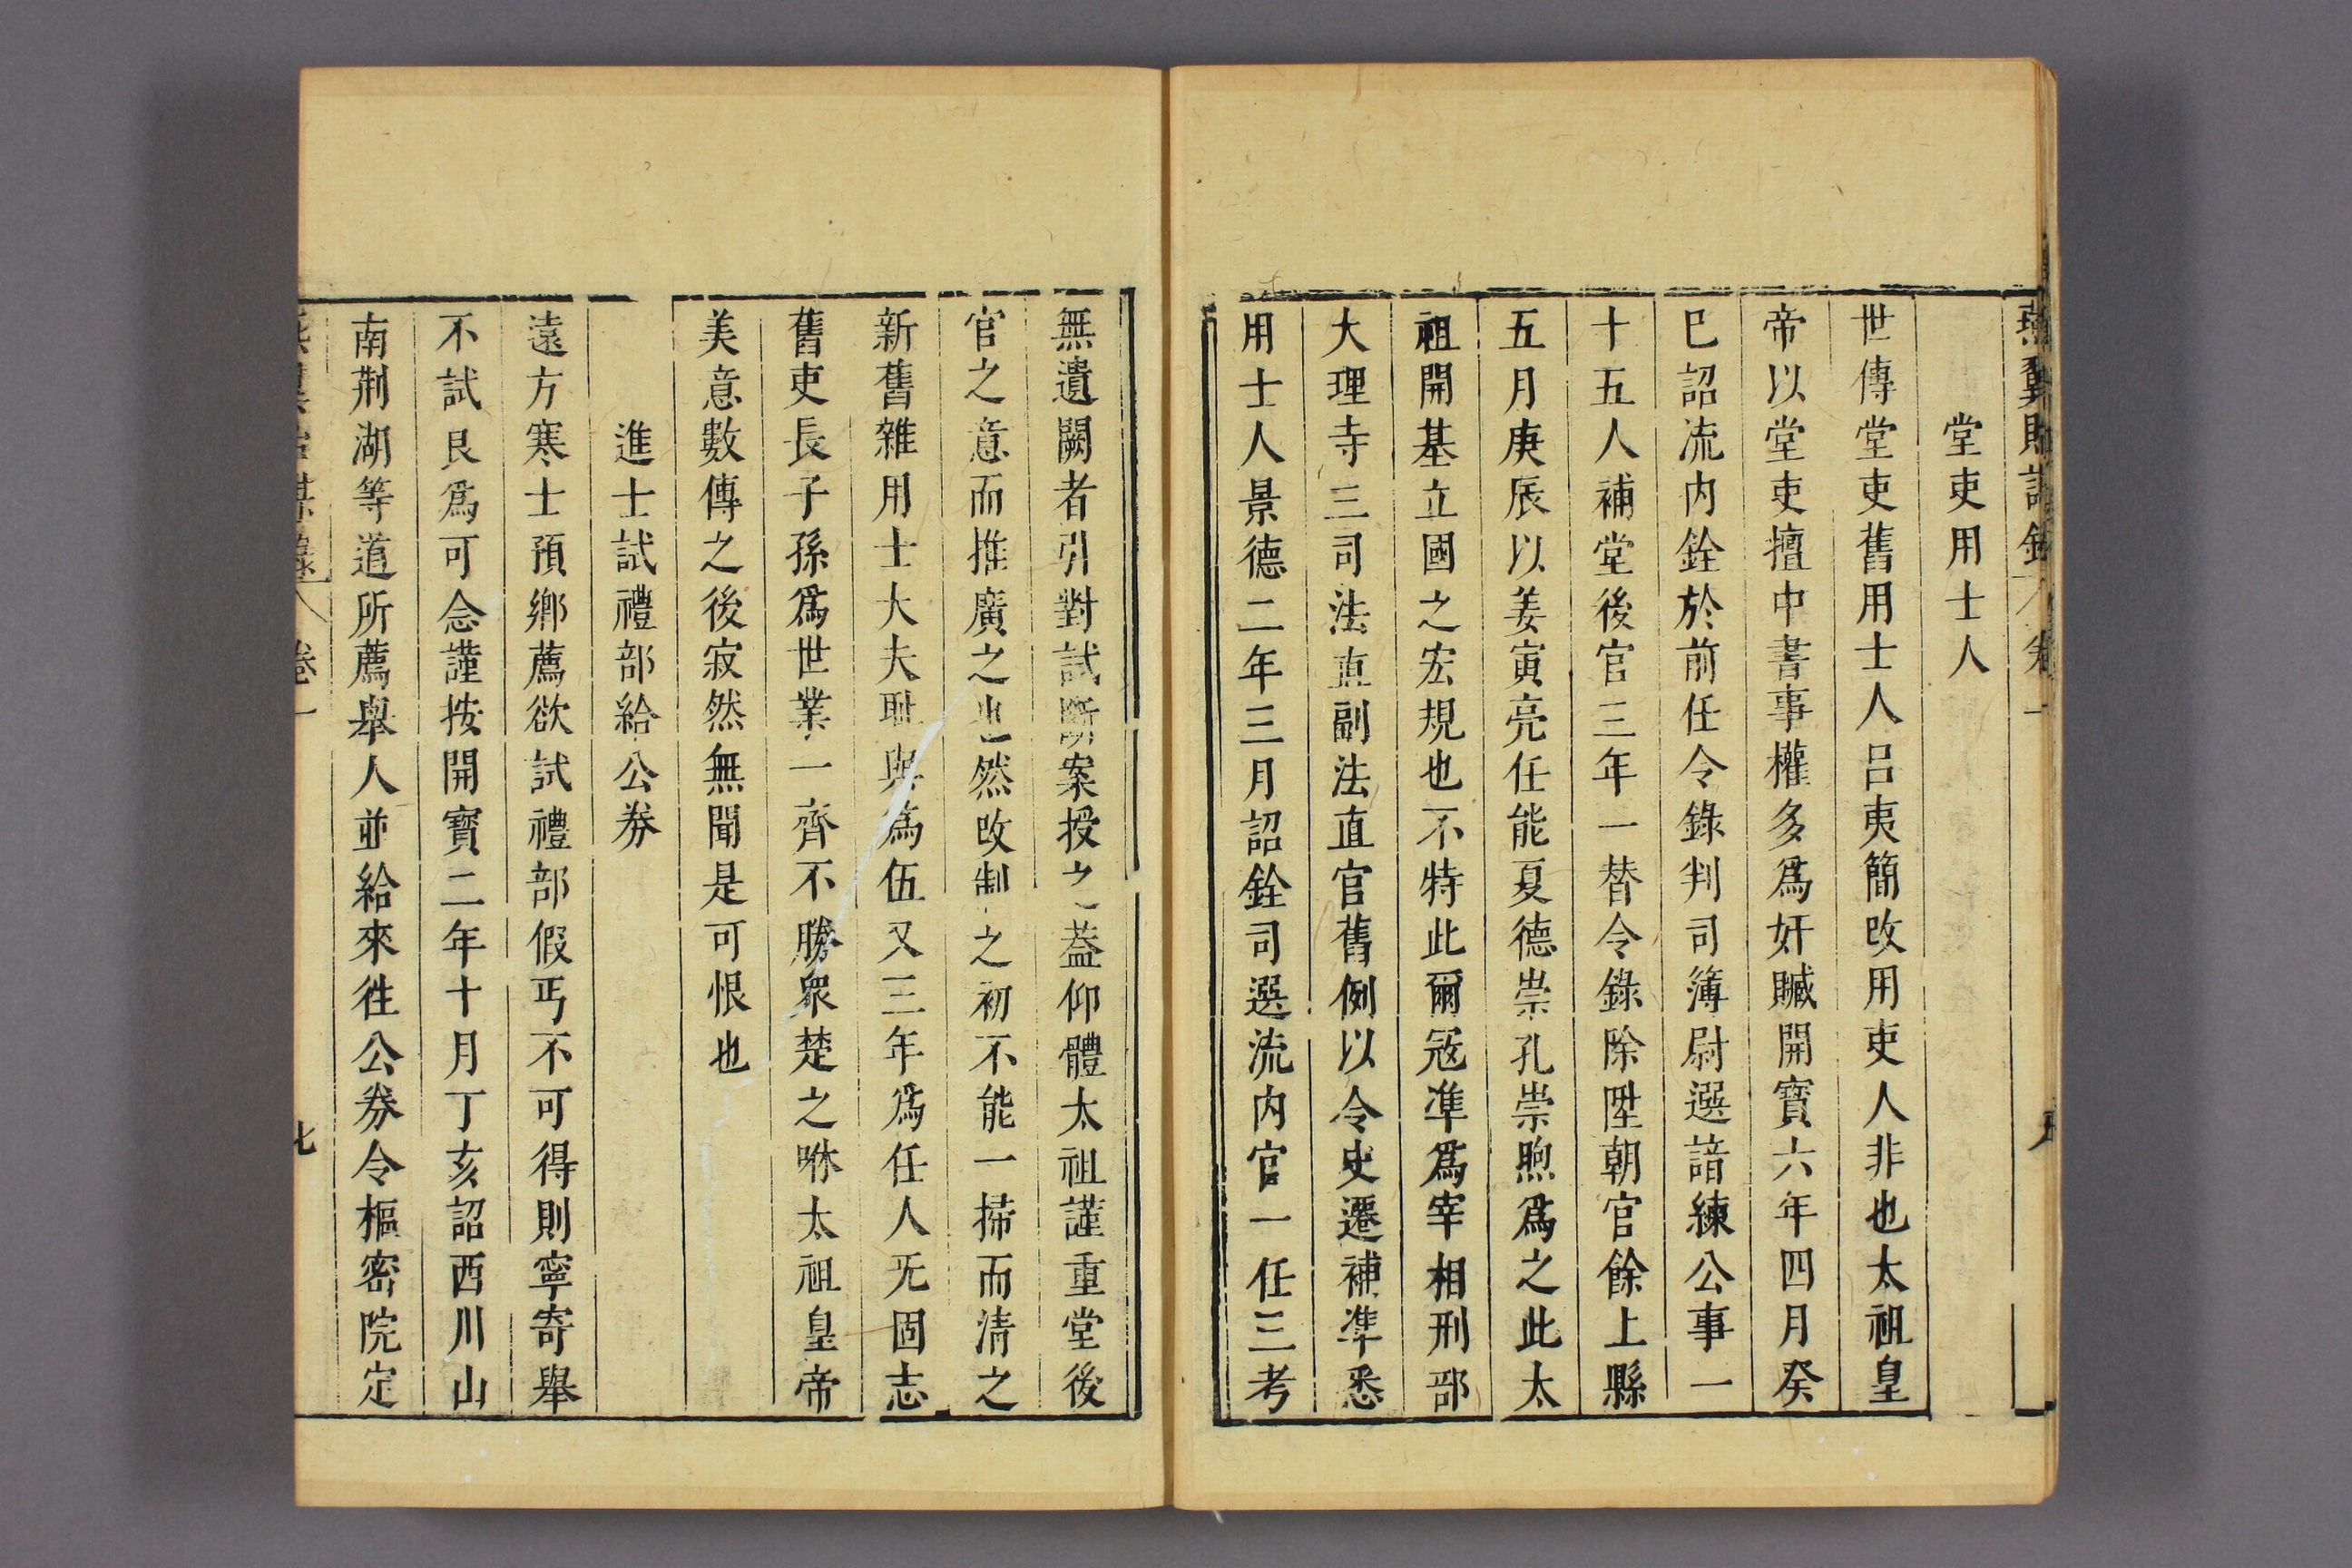 燕翼貽謀錄 卷一
堂吏用士人
世傳堂吏舊用士人呂夷簡改用吏人非也太祖皇
帝以堂吏擅中書事權多爲奸贓開寶六年四月癸
巳詔流內銓於前任令錄判司簿尉選諳練公事一
十五人補堂後官三年一替令錄除陞朝官餘上縣
五月庚辰以姜寅亮任能夏德崇孔崇煦爲之此太
祖開基立國之宏規也不特此爾寇準爲宰相刑部
大理寺三司法直副法直官舊例以令史遷補準悉
用士人景德二年三月詔銓司選流內官一任三考
無遺闕者引對試斷案授之蓋仰體太祖謹重堂後
官之意而推廣之也然改制之初不能一掃而清之
新舊雜用士大夫恥與爲伍又三年爲任人无固志
舊吏長子孫爲世業一齊不勝衆楚之咻太祖皇帝
美意數傳之後寂然無聞是可恨也
進士試禮部給公劵
遠方寒士預鄉薦欲試禮部假丐不可得則寧寄舉
不試良爲可念謹按開寶二年十月丁亥詔西川山
南荆湖等道所薦舉人並給來徃公劵令樞密院定
卷一 七